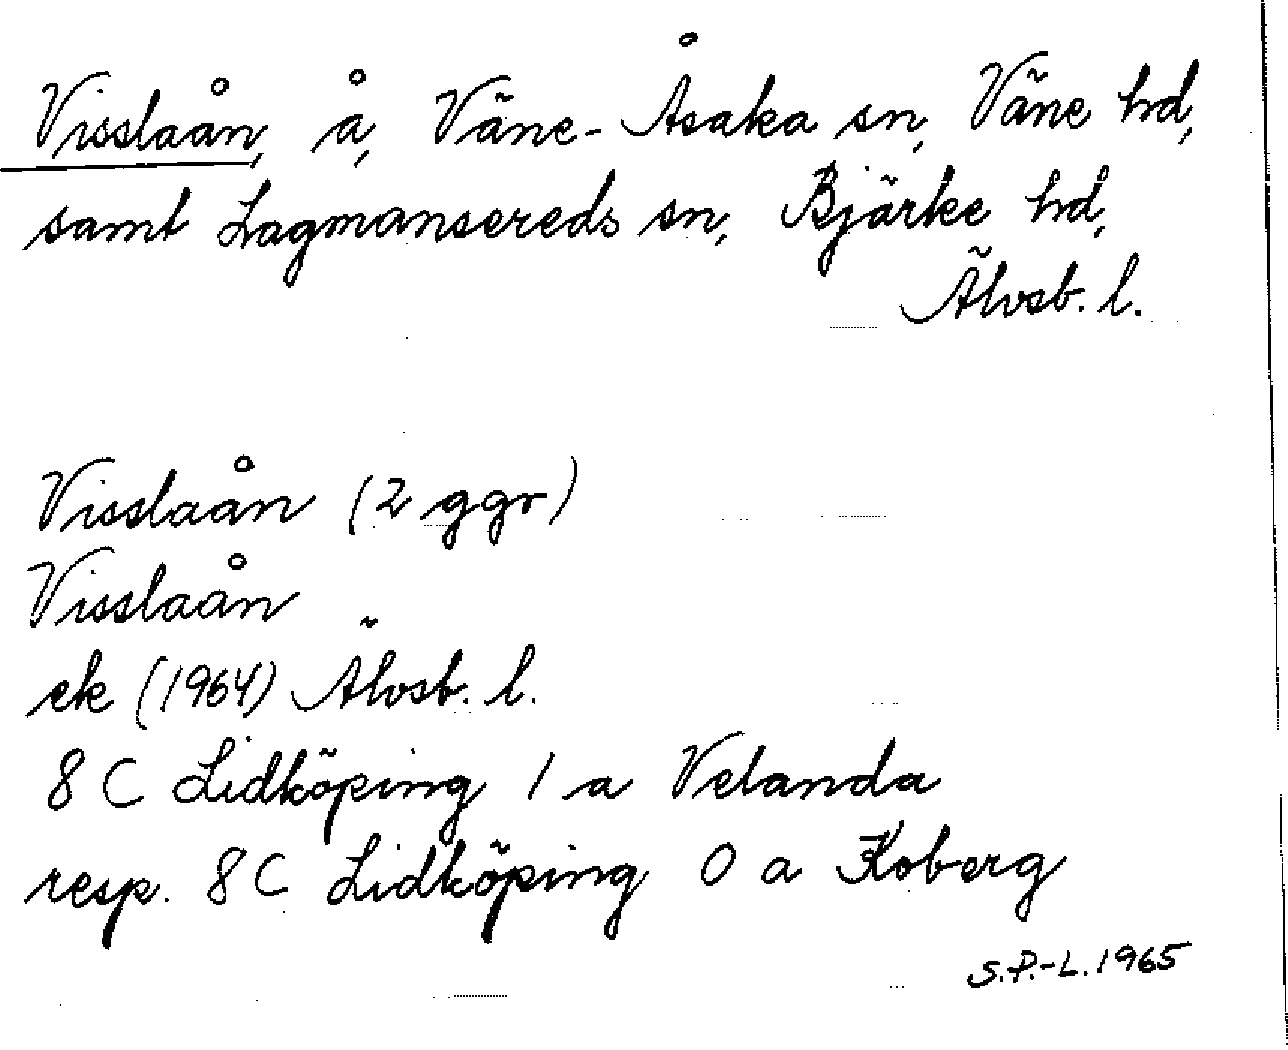 Visslaån, å, Väne-Åsaka sn, Väne hd,
samt Lagmansereds sn, Bjärke hd,
Älvsb. l.
Visslaån (2 ggr)
Visslaån
ek (1964) Älvsb. l.
8 C Lidköping 1 a Velanda
resp. 8 C Lidköping 0 a Koberg
S.P.-L. 1965